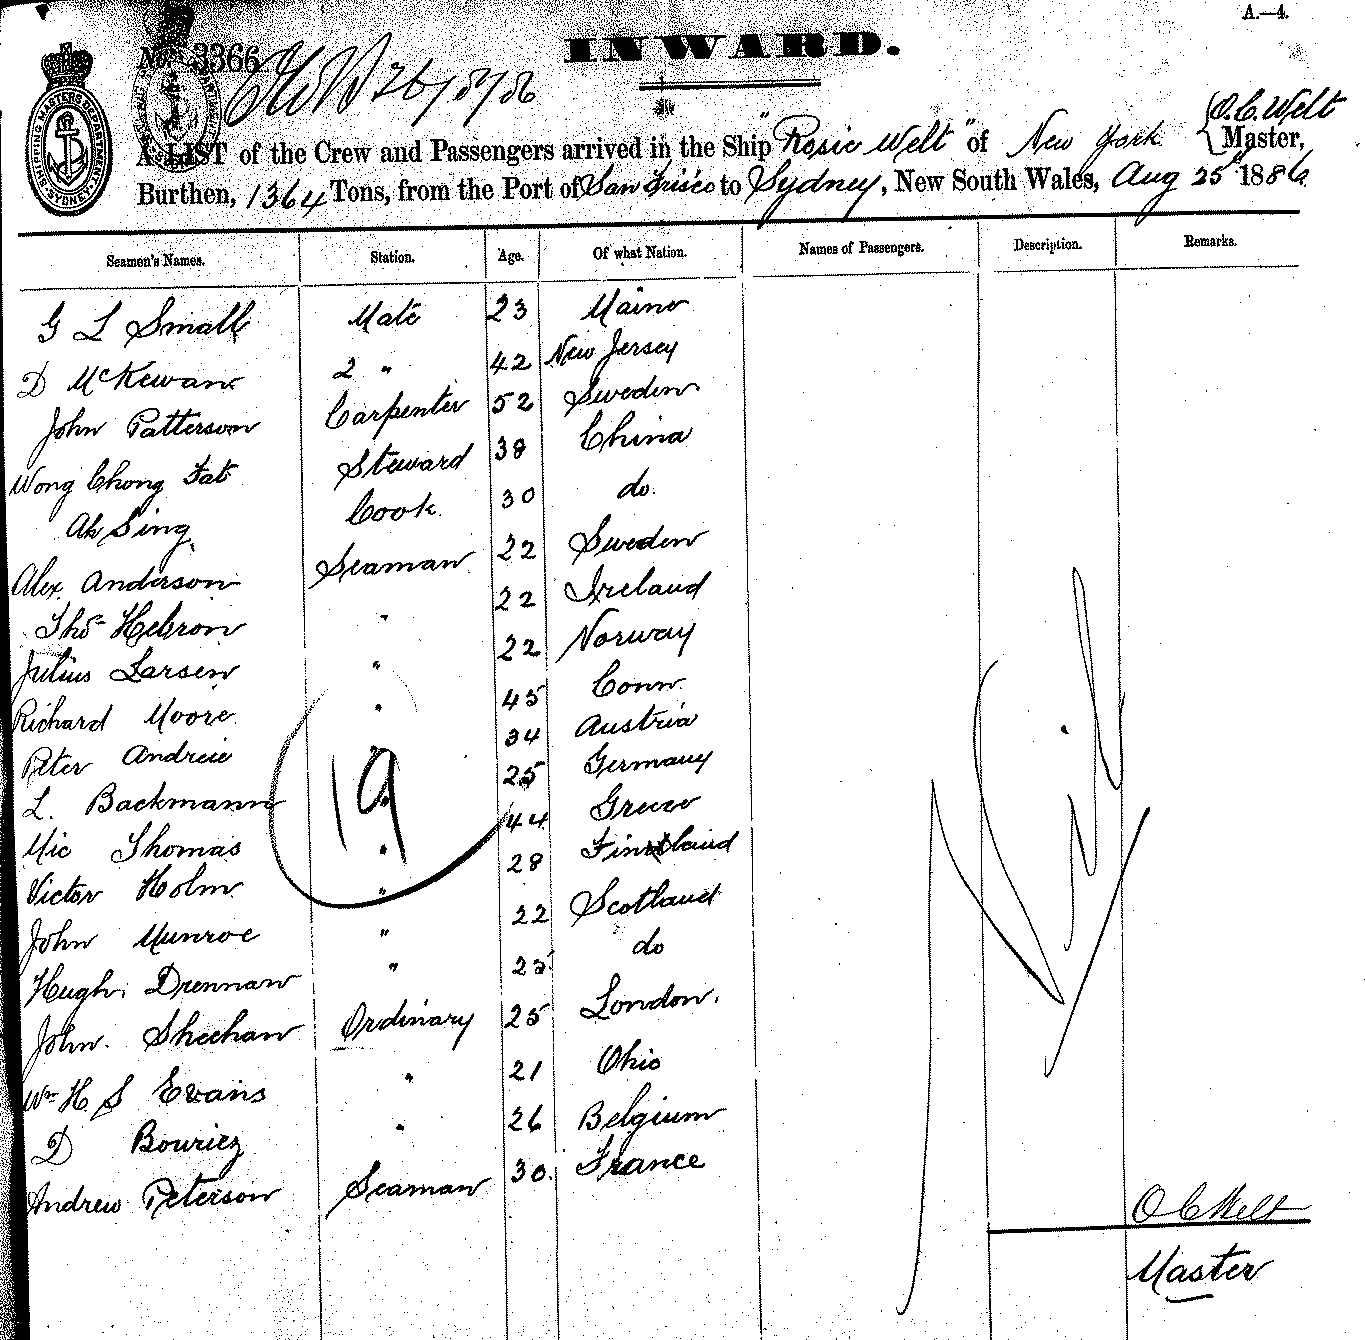 A.—4.
No. 3366
26/8/86
INWARD.
SHIPPING MASTERS DEPARTMENT SYDNEY
O. C. Welt
A LIST of the Crew and Passengers arrived in the Ship "Rosie Welt" of New York Master,
Burthen, 1364 Tons, from the Port of San Frisco to Sydney, New South Wales, Aug 25th 1886
Seamen's Names. Station. Age. Of what Nation. Names of Passengers. Description. Remarks.
G L Small Mate 23 Maine
D McKewan 2 " 42 New Jersey
John Patterson Carpenter 52 Sweden
Wong Chong Fat Steward 38 China
Ah Sing Cook 30 do.
Alex. Anderson Seaman 22 Sweden
Thos Hebron " 22 Ireland
Julius Larsen " 22 Norway
Richard Moore " 45 Conn.
Peter Andreie " 34 Austria
L. Backmann " 25 Germany
Mic Thomas " 44 Greece
Victor Holm " 28 Finland
John Munroe " 22 Scotland
Hugh Drennan " 25 do
John Sheehan Ordinary 25 London.
Wm H. S Evans " 21 Ohio
D Bouriez " 26 Belgium
Andrew Peterson Seaman 30. France
19
Nil
O C Welt
Master